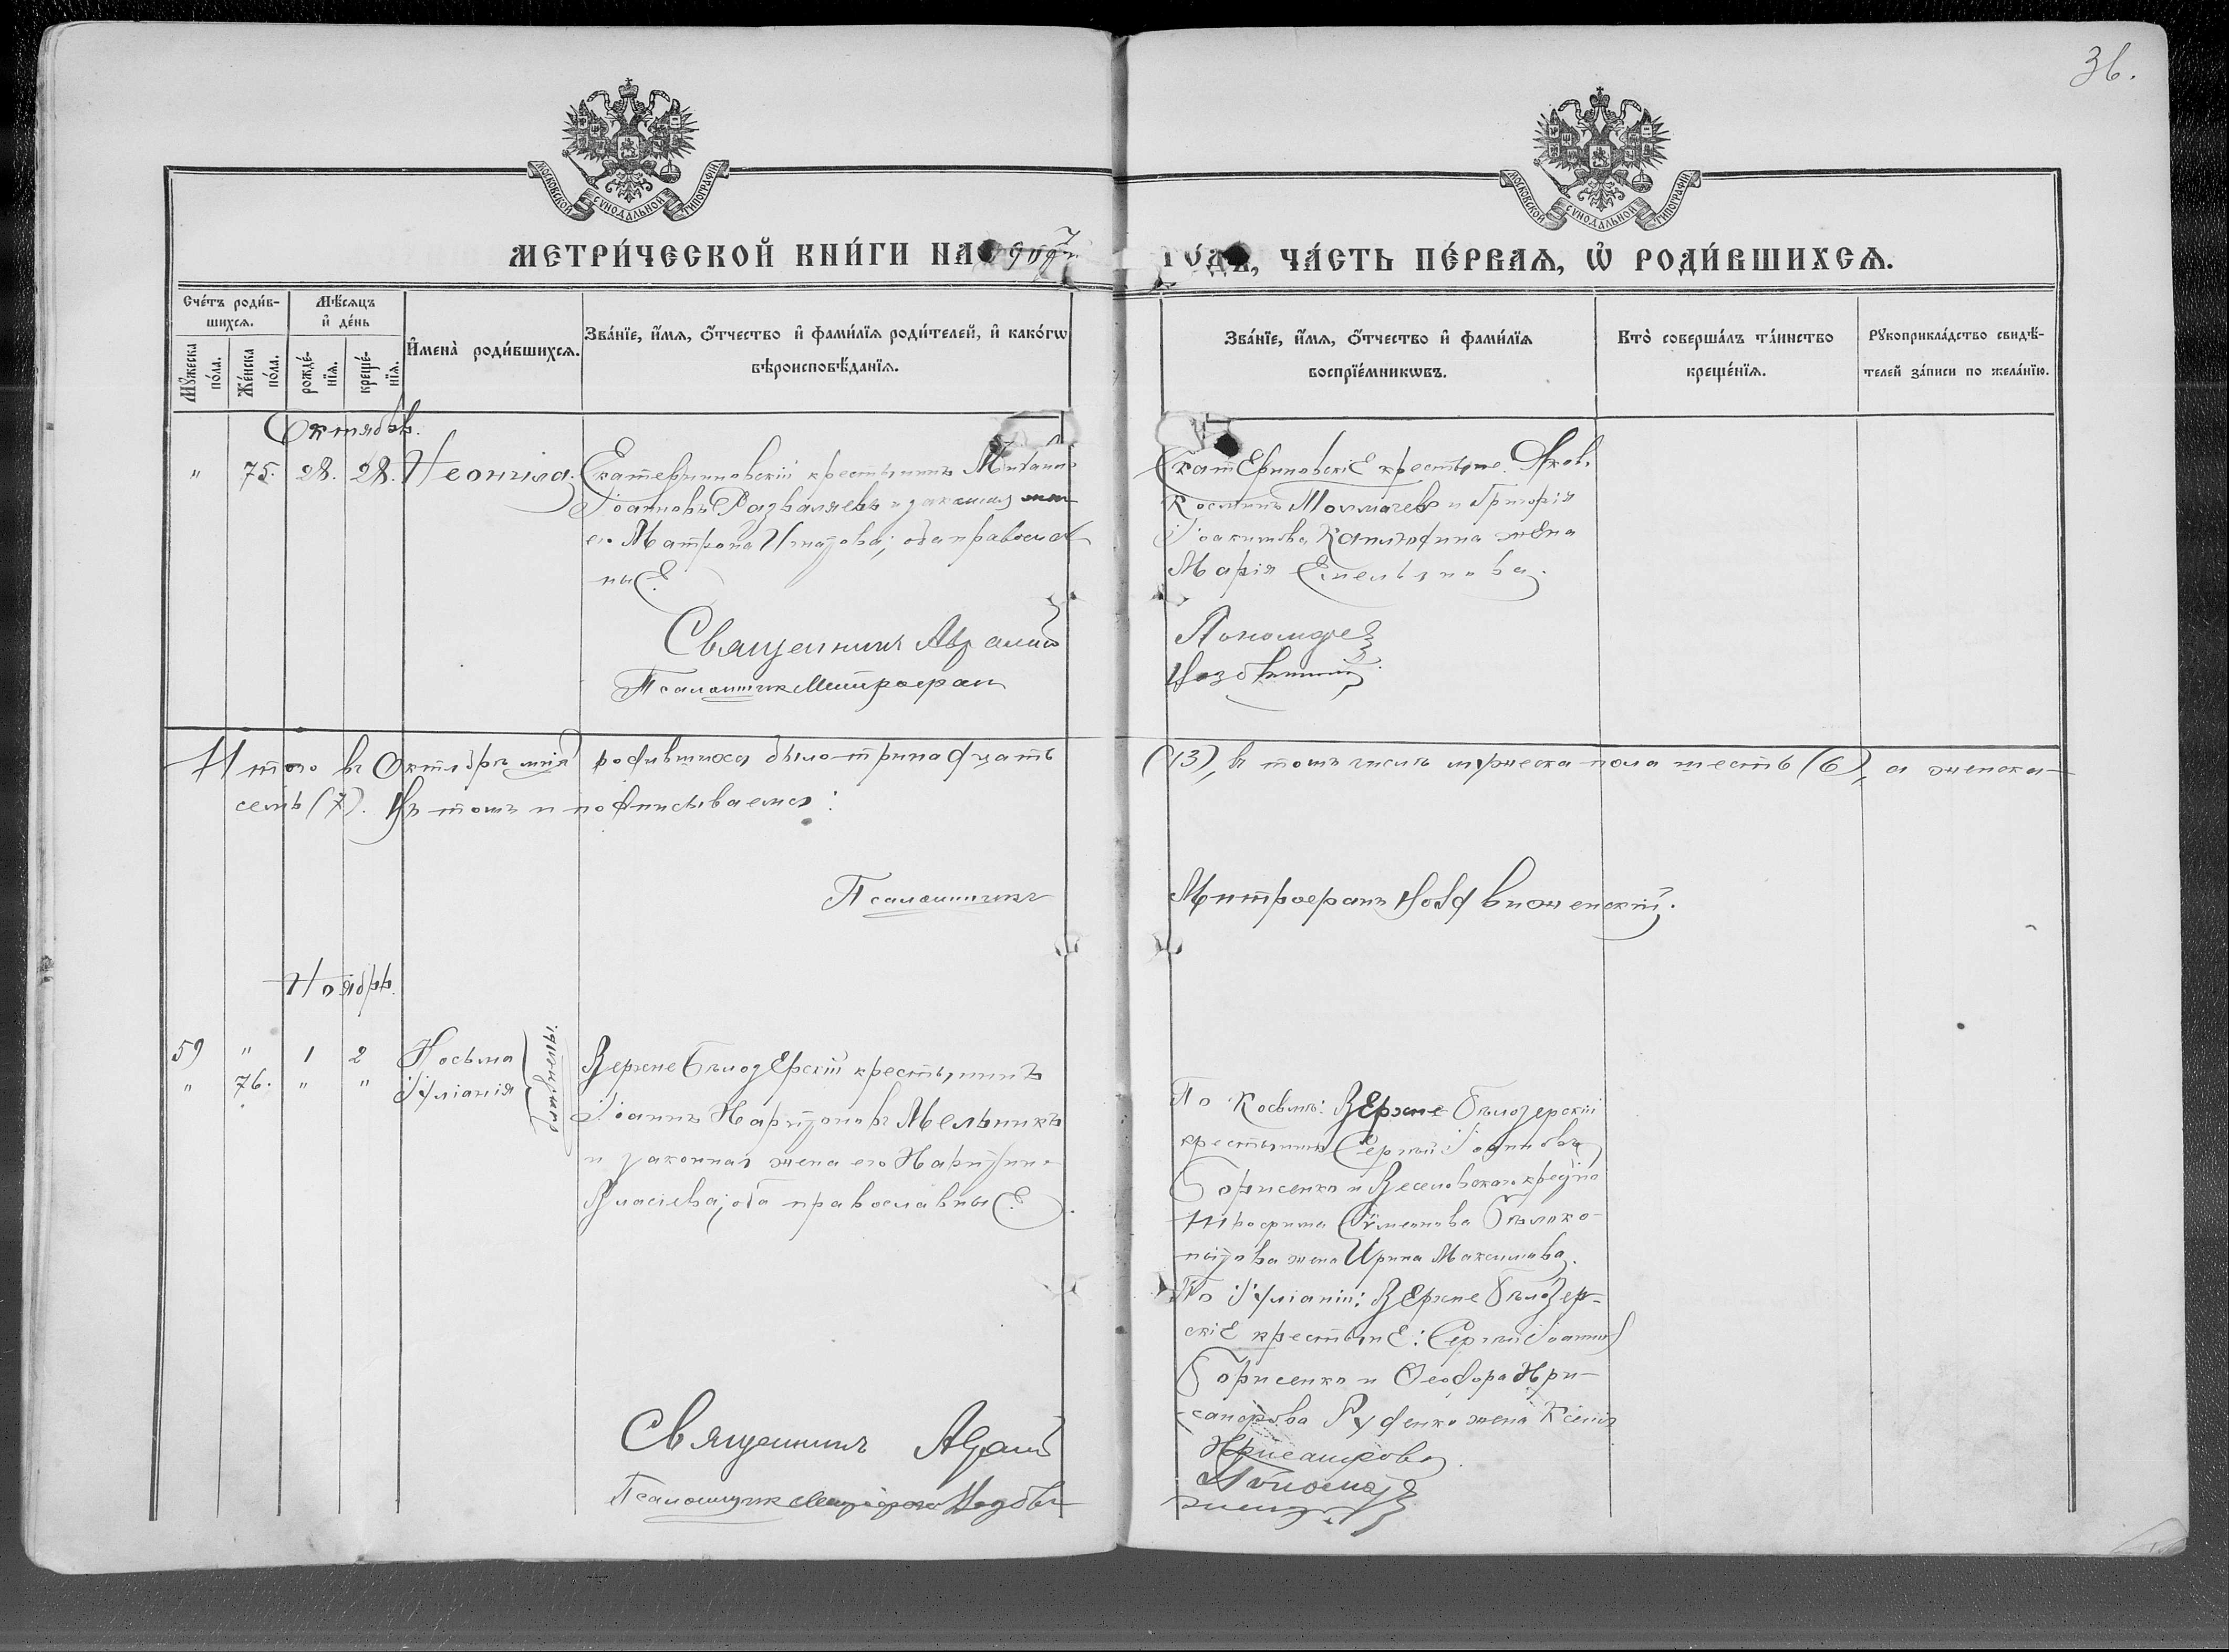 36.
МОСКОВСКОЙ СѴНОДАЛЬНОЙ ТИПОГРАФІИ
МОСКОВСКОЙ СѴНОДАЛЬНОЙ ТИПОГРАФІИ
МЕТРИ́ЧЕСКОЙ КНИ́ГИ НА 1907
ГО́ДЪ, ЧА́СТЬ ПЕ́РВАѦ, Ѽ РОДИ́ВШИХСѦ.
Сче́тъ роди́в-
шихсѧ.
Мꙋ́жеска по́ла.
Же́нска по́ла.
Мѣ́сѧцъ
и҆ де́нь
рожде́-
нїѧ.
креще́-
нїѧ.
И҆мена̀ роди́вшихсѧ.
Зва́нїе, и҆́мѧ, ѻ҆́тчество и҆ фами́лїѧ роди́телей, и҆ како́гѡ
вѣроисповѣ́данїѧ.
Зва́нїе, и҆́мѧ, ѻ҆́тчество и҆ фами́лїѧ
воспрїе́мникѡвъ.
Кто̀ соверша́лъ та́инство
креще́нїѧ.
Рꙋкоприкла́дство свидѣ́-
телей за́писи по жела́нїю.
Октябрь.
" 75. 28. 28. Неонила.
Екатериновскій крестьянинъ
Іоанновъ Разваляевъ и законная жена
его Матрона Игнатова; оба православ-
ные.
Священникъ
Псаломщик Митрофан
Екатериновскіе крестьяне: Яков.
Космин Толмачевъ и Григорія
Іоакимова жена
Марія Емельянова.
Пономарев
Итого въ Октябрѣ мцѣ родившихся было тринадцать
(13), въ томъ числѣ мужеска пола шесть (6), а женска—
семь (7). Въ томъ и подписываемся:
Псаломщикъ
Митрофанъ Воздвиженскій.
Ноябрь.
59 " 1 2 Косьма
" 76. " " Іуліанія
близнецы
Верхне Бѣлозерскій крестьянинъ
Іоаннъ Харитоновъ Мельникъ
и законная жена его Харитина
Власіева; оба православные.
Священникъ
Псаломщик Митрофан Воздви-
женскій
По Косьмѣ: Верхне Бѣлозерскій
крестьянинъ Сергѣй Іоанновъ
Борисенко и Веселовскаго кре-на
Трофима Симеонова Бѣлоко-
пытова жена Ирина Максимова.
По Іуліаніи: Верхне Бѣлозер-
скіе крестьяне: Сергѣй Іоаннов
Борисенко и Ѳеодора Хри-
санфова Руденко жена Ксенія
Хрисанфова.
Пономарев